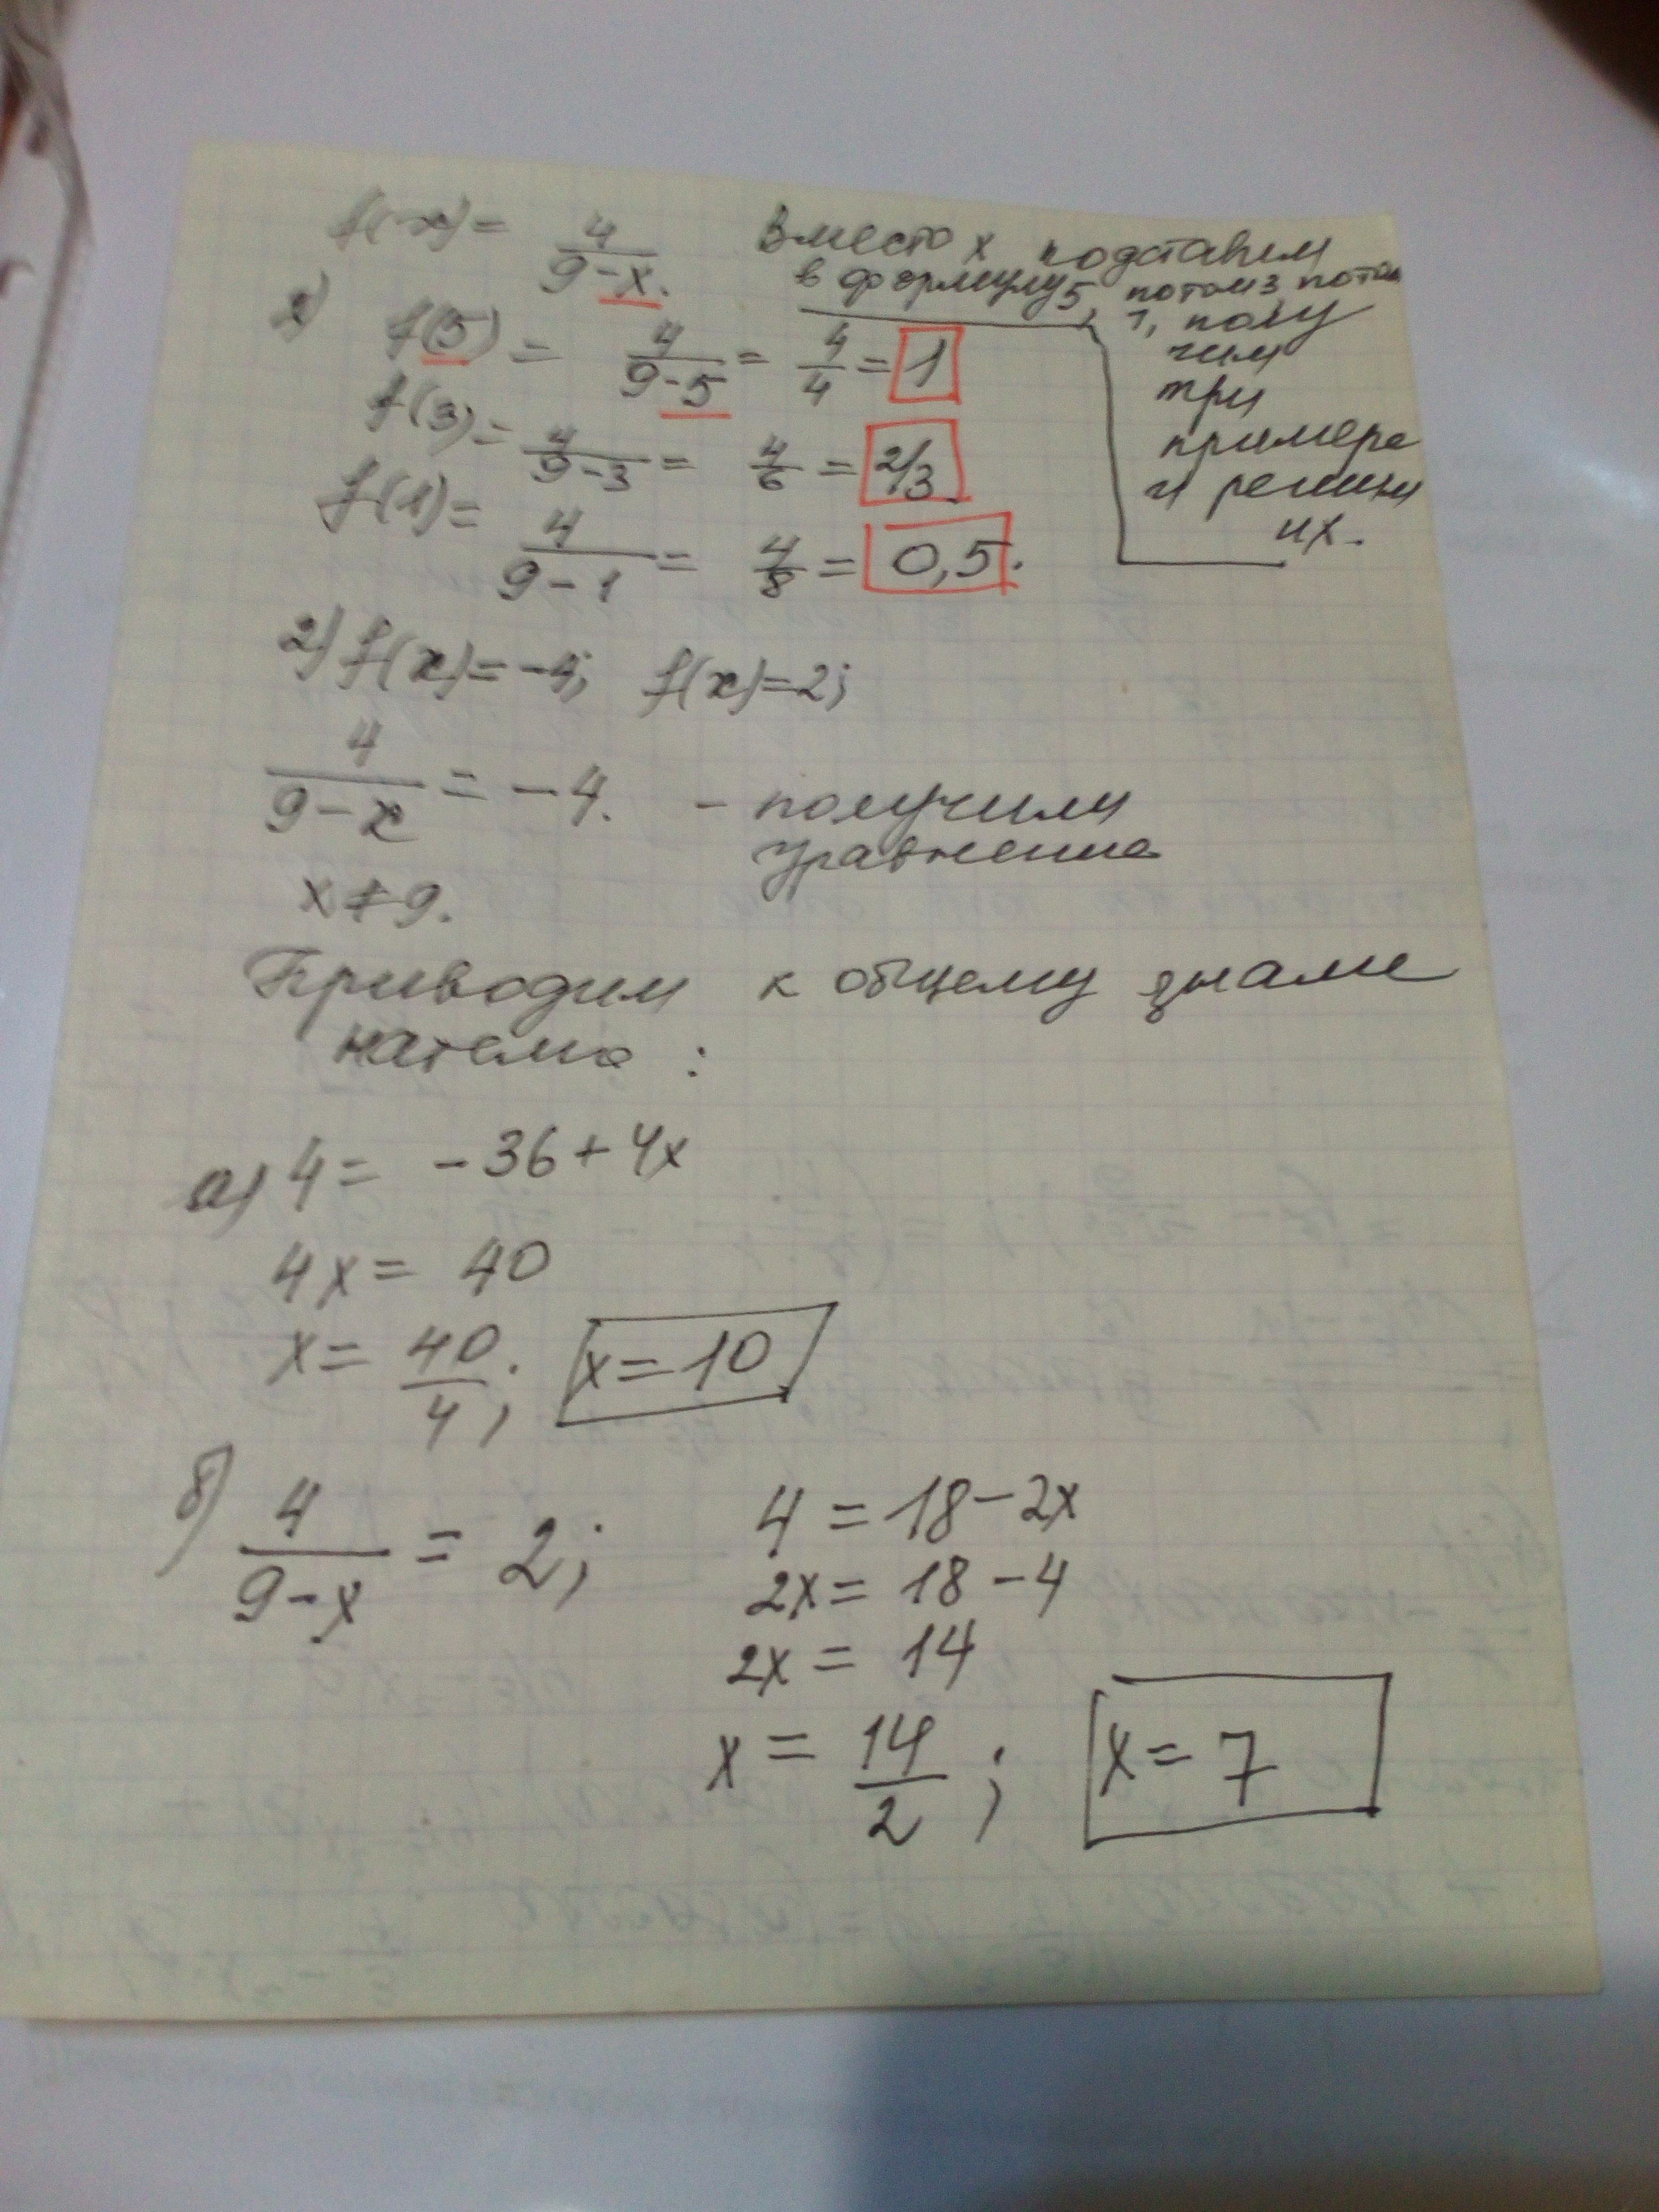 f(x) = 4/(9-x).
Вместо x подставим
в формулу 5, потом 3, потом
1, полу
чим
три
примера
и решим
их.
1) f(5) = 4/(9-5) = 4/4 = 1
f(3) = 4/(9-3) = 4/6 = 2/3.
f(1) = 4/(9-1) = 4/8 = 0,5.
2) f(x) = -4; f(x) = 2;
4/(9-x) = -4. - получили
уравнение
x ≠ 9.
Приводим к общему знаме
нателю :
а) 4 = -36 + 4x
4x = 40
x = 40/4; x = 10
б) 4/(9-x) = 2;
4 = 18 - 2x
2x = 18 - 4
2x = 14
x = 14/2; x = 7